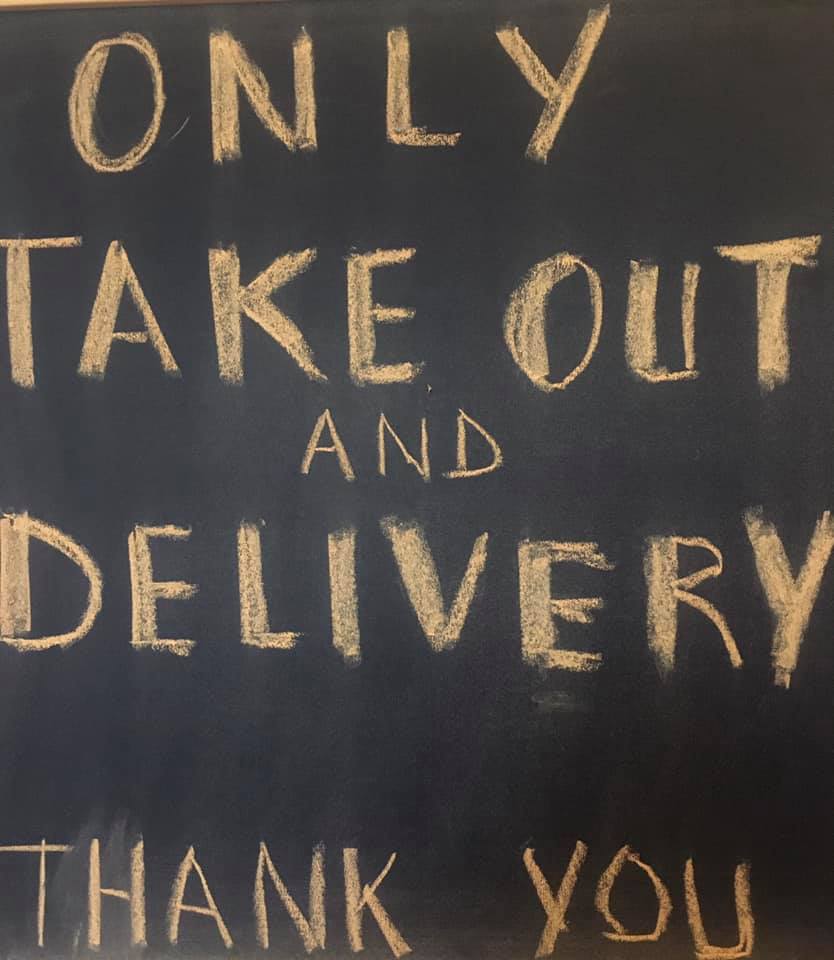 ONLY
TAKE OUT
AND
DELIVERY
THANK YOU